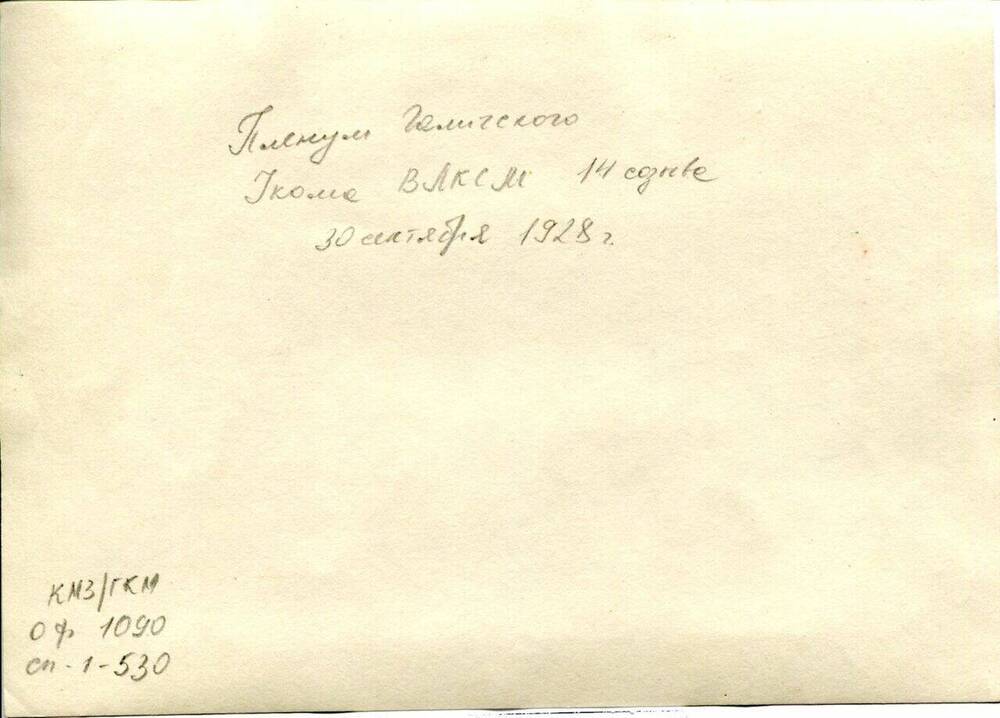 Пленум Галичского
Укома ВЛКСМ 14 созыва
30 сентября 1928 г.
КМЗ/ГКМ
ОФ 1090
сп-1-530